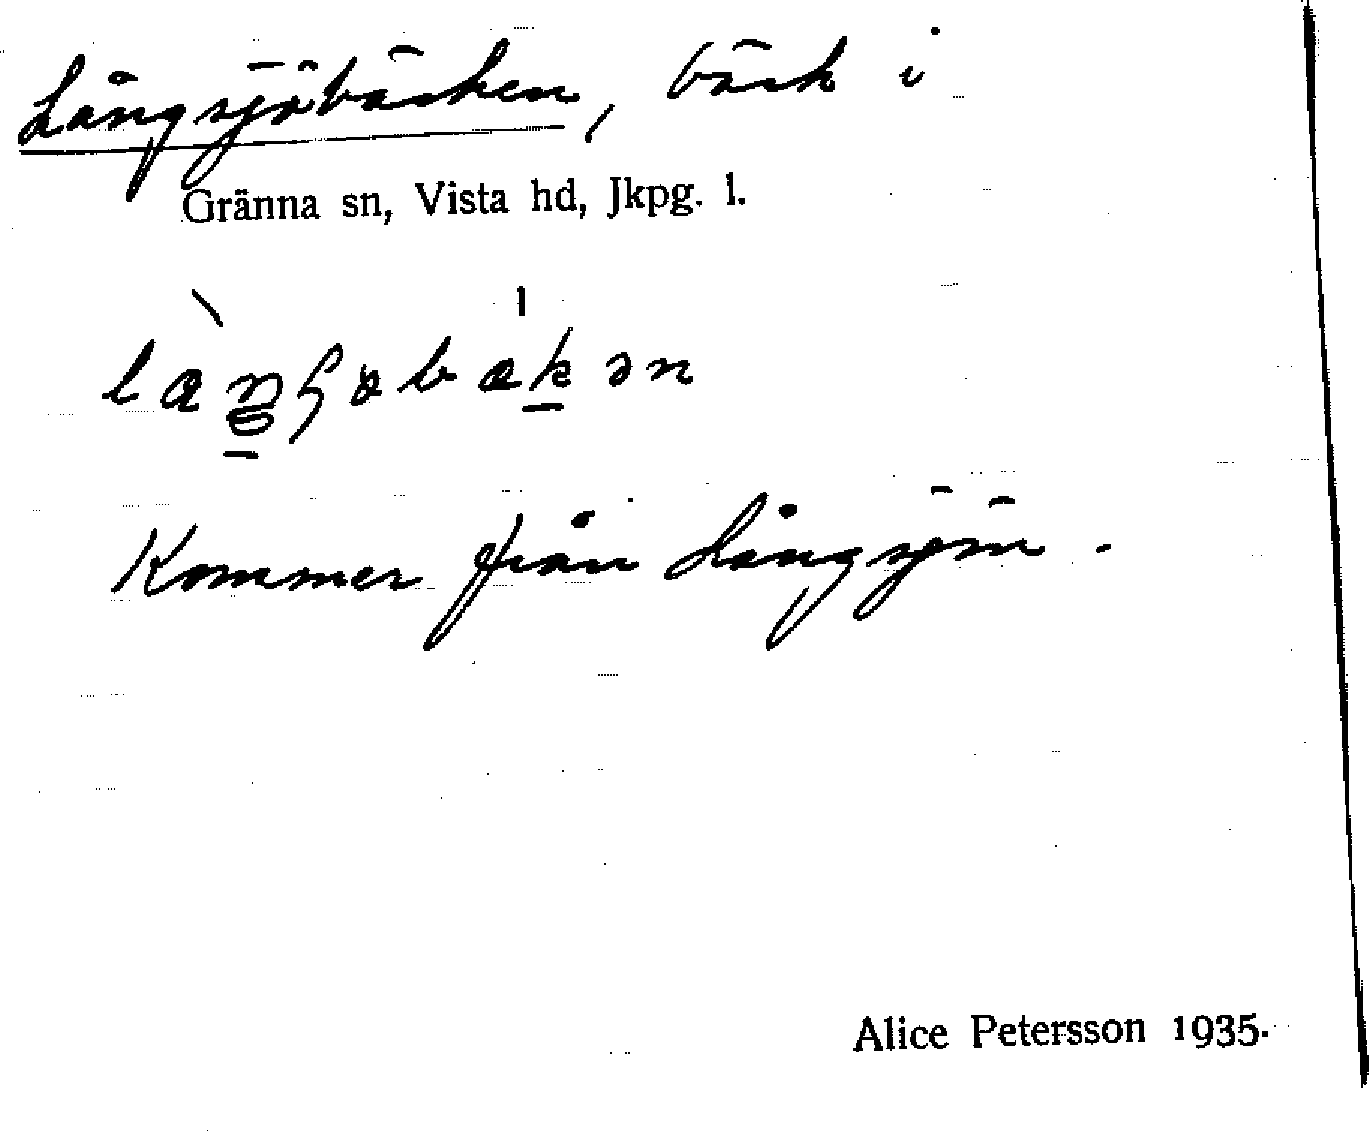 Långsjöbäcken, bäck i
Gränna sn, Vista hd, Jkpg. l.
Kommer från Långsjön.
Alice Petersson 1935.